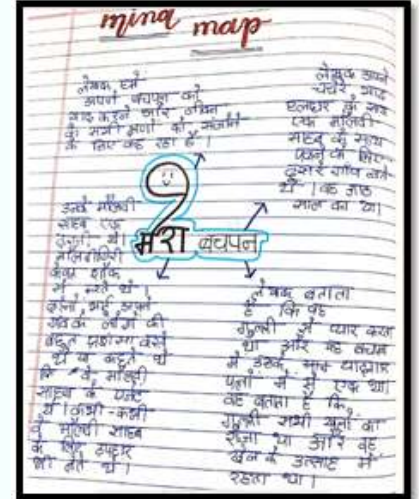 mind map
लेखक हमें
अपने बचपन को
याद करने और जीवन
के सभी क्षणों को संजोने
के लिए कह रहा है।
लेखक अपने
चचेरे भाई
हलधर के साथ
एक मौलवी
साहब के साथ
पढ़ने के लिए
दूसरे गाँव जाते
थे। वह आठ
साल का था।
2
मेरा बचपन
उनके मौलवी
साहब एक
दरजी थे।
मौलवीगिरी
केवल शौक
से करते थे।
दोनों भाई अपने
गाँव के लोगों की
बहुत प्रशंसा करते
थे व कहते थे
कि वे मौलवी
साहब के
थे। कभी-कभी
वे मौलवी साहब
के लिए उपहार
भी लेते थे।
लेखक बताता
है कि वह
गुल्ली से प्यार करता
था और वह बचपन
में उसके सबसे यादगार
पलों में से एक था।
वह बताता है कि
गुल्ली सभी खेलों का
राजा था और वह
खेल के उत्साह में
रहता था।